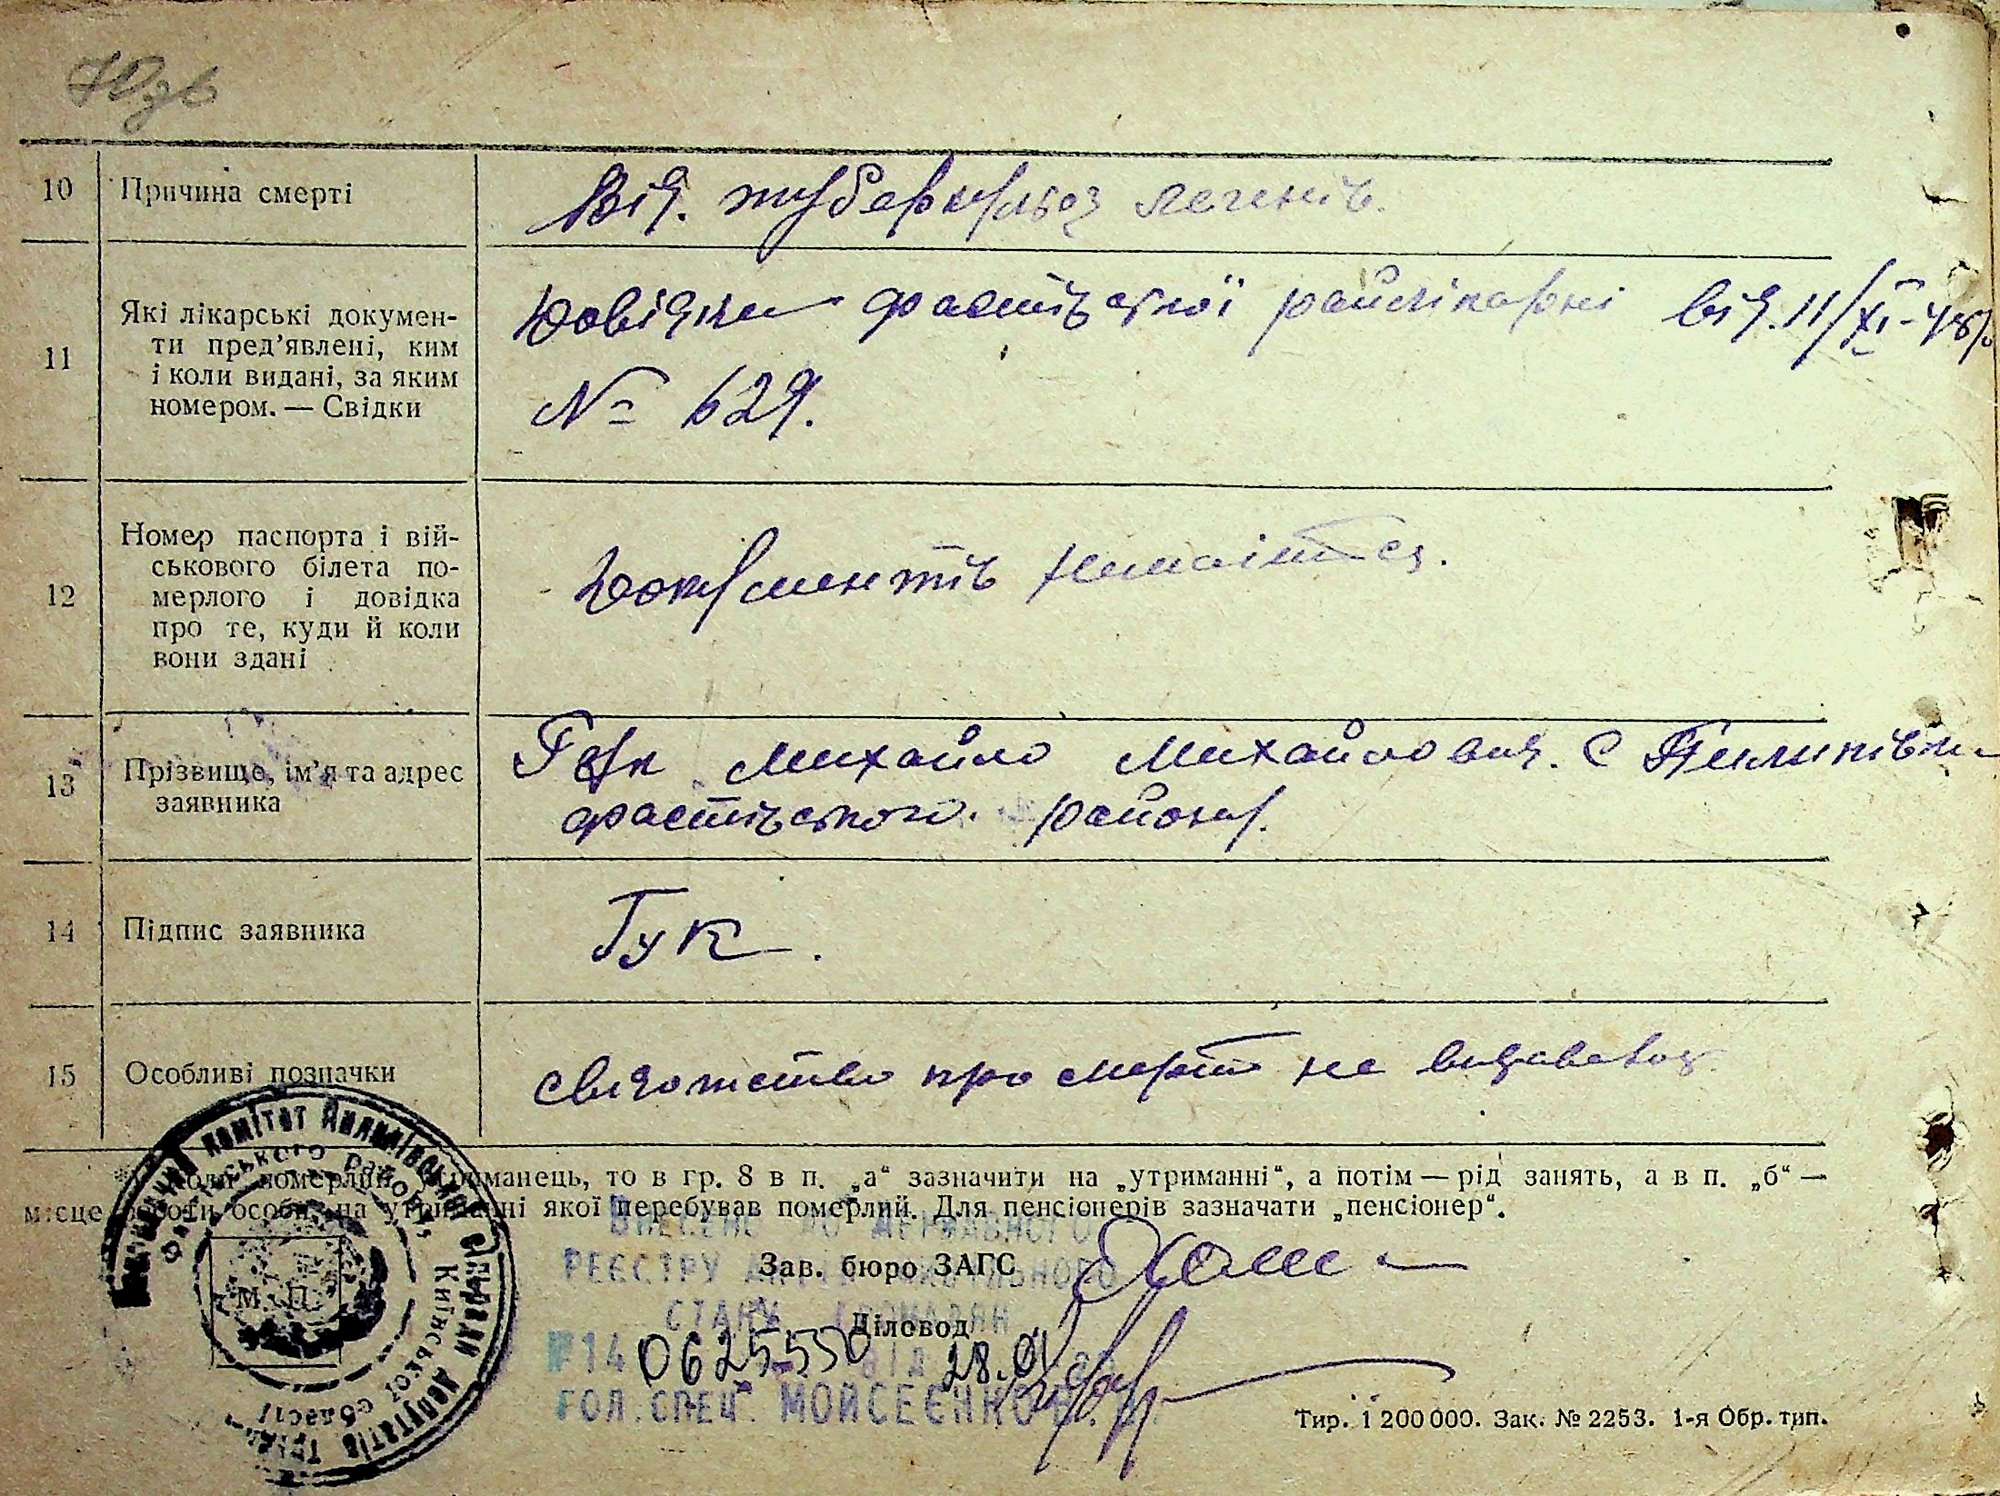 10 Причина смерті
Від. туберкульоз легенів.
11 Які лікарські докумен-
ти пред'явлені, ким
і коли видані, за яким
номером. — Свідки
Довідка фастівської райлікарні від. 11/XI-48р
№ 629.
12 Номер паспорта і вій-
ськового білета по-
мерлого і довідка
про те, куди й коли
вони здані
Документів немаїться.
13 Прізвище, ім'я та адрес
заявника
Гук Михайло Михайлович. С Пилипівка
фастівського. району.
14 Підпис заявника
Гук.
15 Особливі позначки
свідоцтво про смерть не
Коли померлий утриманець, то в гр. 8 в п. „а“ зазначити на „утриманні“, а потім — рід занять, а в п. „б“ —
місце роботи особи, на утриманні якої перебував померлий. Для пенсіонерів зазначати „пенсіонер“.
Виконавчий комітет Пилипівської сільради депутатів
Фастівського району, Київської області
М. П.
Внесено до Державного
реєстру актів цивільного
стану громадян
№ 14 0625550 від 28.01
гол. спец. Мойсеєнко
Зав. бюро ЗАГС
Діловод
Тир. 1 200 000. Зак. № 2253. 1-я Обр. тип.